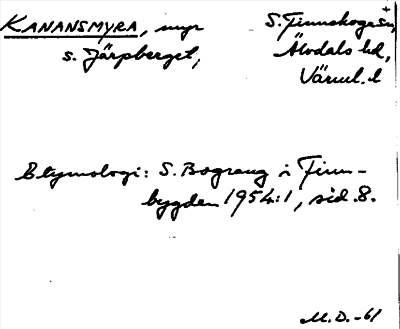 KANANSMYRA, myr
s. Järpberget,
S. Finnskoga sn,
Älvdals hd,
Värml. l
Etymologi: S. Bograng i Finn-
bygden 1954:1, sid. 8.
M.D. -61